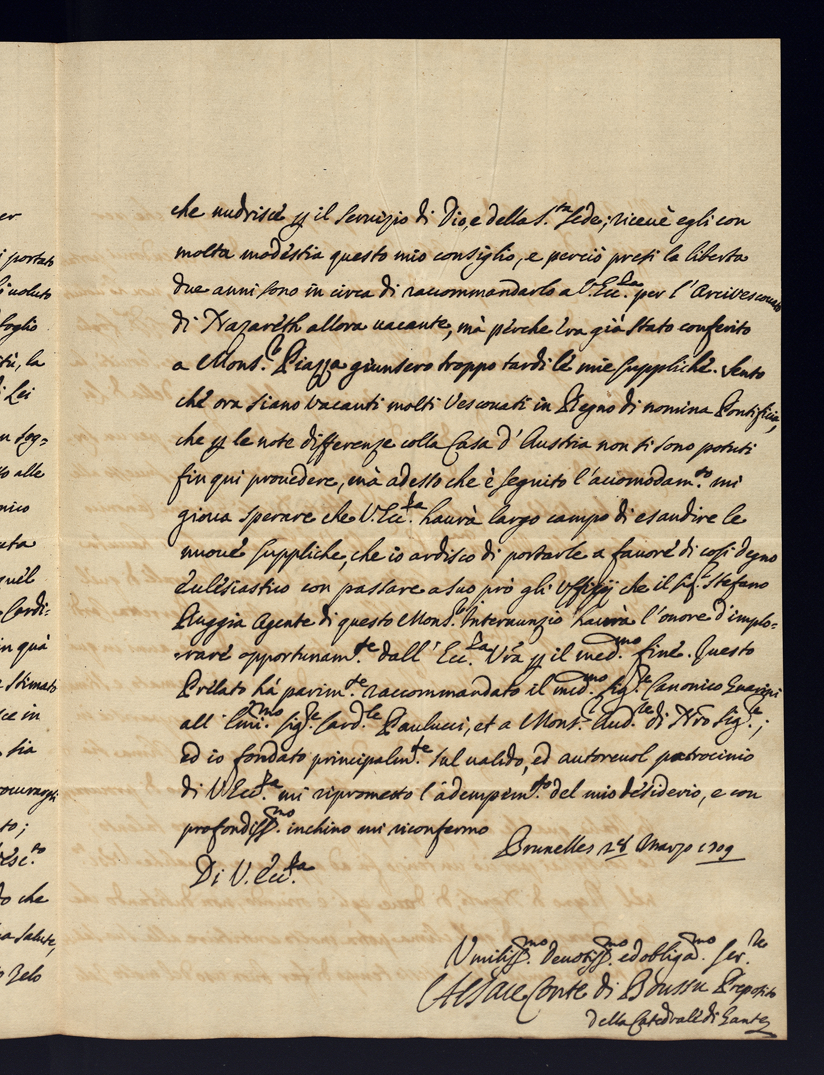 er
che nudrisce p il servizio di Dio, e della S.ta Sede; riceuè egli con
i portato
molta modestia questo mio consiglio, e perciò presi la liberta
uoluto
due anni sono in circa di raccommandarlo a V. Ecc.za per l'Arciuescouato
foglio
di Nazareth allora uacante, mà perche era già stato conferito
la
a Mons.r Piazza giunsero troppo tardi le mie suppliche. Sento
i Lei
che ora siano vacanti molti Vescouati in Regno di nomina Pontificia,
n sog=
che p le note differenze colla Casa d'Austria non si sono potuti
alle
fin qui prouedere, mà adesso che è seguito l'acomodam.to mi
nico
gioua sperare che V. Ecc.za haurà largo campo di esaudire le
uta
nuoue suppliche, che io ardisco di portarle a fauore di così degno
quel
Eclesiastico con passare a suo prò gli Uffizij che il Sig.r Stefano
Cardi=
Ruggia Agente di questo Mons.r Internunzio haurà l'onore d'implo=
in quà
rare opportunam.te dall' Ecc.za Vra p il med.mo fine. Questo
stimato
Prelato hà parim.te raccommandato il med.mo Sig.re Canonico
sce in
all' Emi.mo Sig.re Card.le Paulucci, et a Mons.r Aud.re di Nro Sig.re;
sia
ed io fondato principalm.te sul ualido, ed autoreuol patrocinio
di V. Ecc.za mi riprometto l'adempim.to del mio desiderio, e con
to;
profondiss.mo inchino mi riconfermo
Brusselles 28 Marzo 1709
Di V. Ecc.za
o che
salute,
Vmiliss.mo deuotiss.mo ed obliga.mo Ser.re
Zelo
Alsace Conte di Boussu Preposito
della Catedrale di Gante